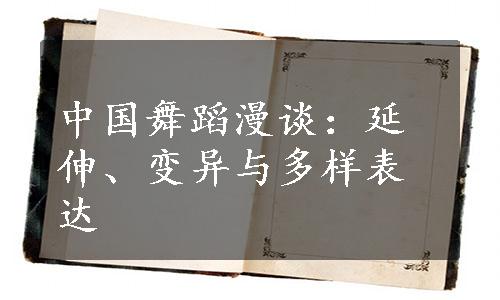 中国舞蹈漫谈：延
伸、变异与多样表
达